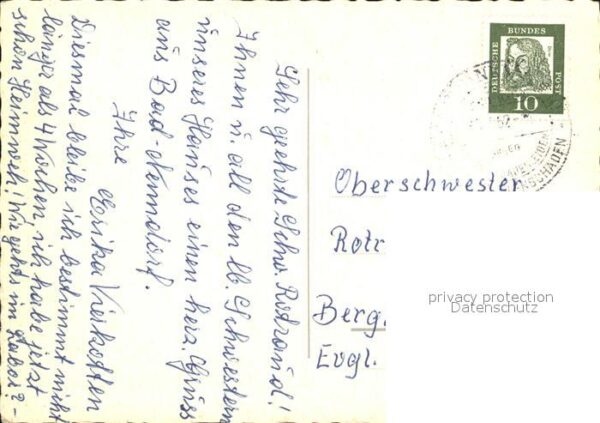 Sehr geehrte Schw. Rotraud!
Ihnen u. all den lb. Schwestern
unseres Hauses einen herz. Gruss
aus Bad-Nenndorf.
Ihre
Erika Vierkotten
Diesmal bleibe ich bestimmt nicht
länger als 4 Wochen, ich habe jetzt
schon Heimweh. Wie gehts in Tabor? -
DEUTSCHE
BUNDES
POST
10
Oberschwester
Rotr
Berg.
Evgl.
privacy protection
Datenschutz